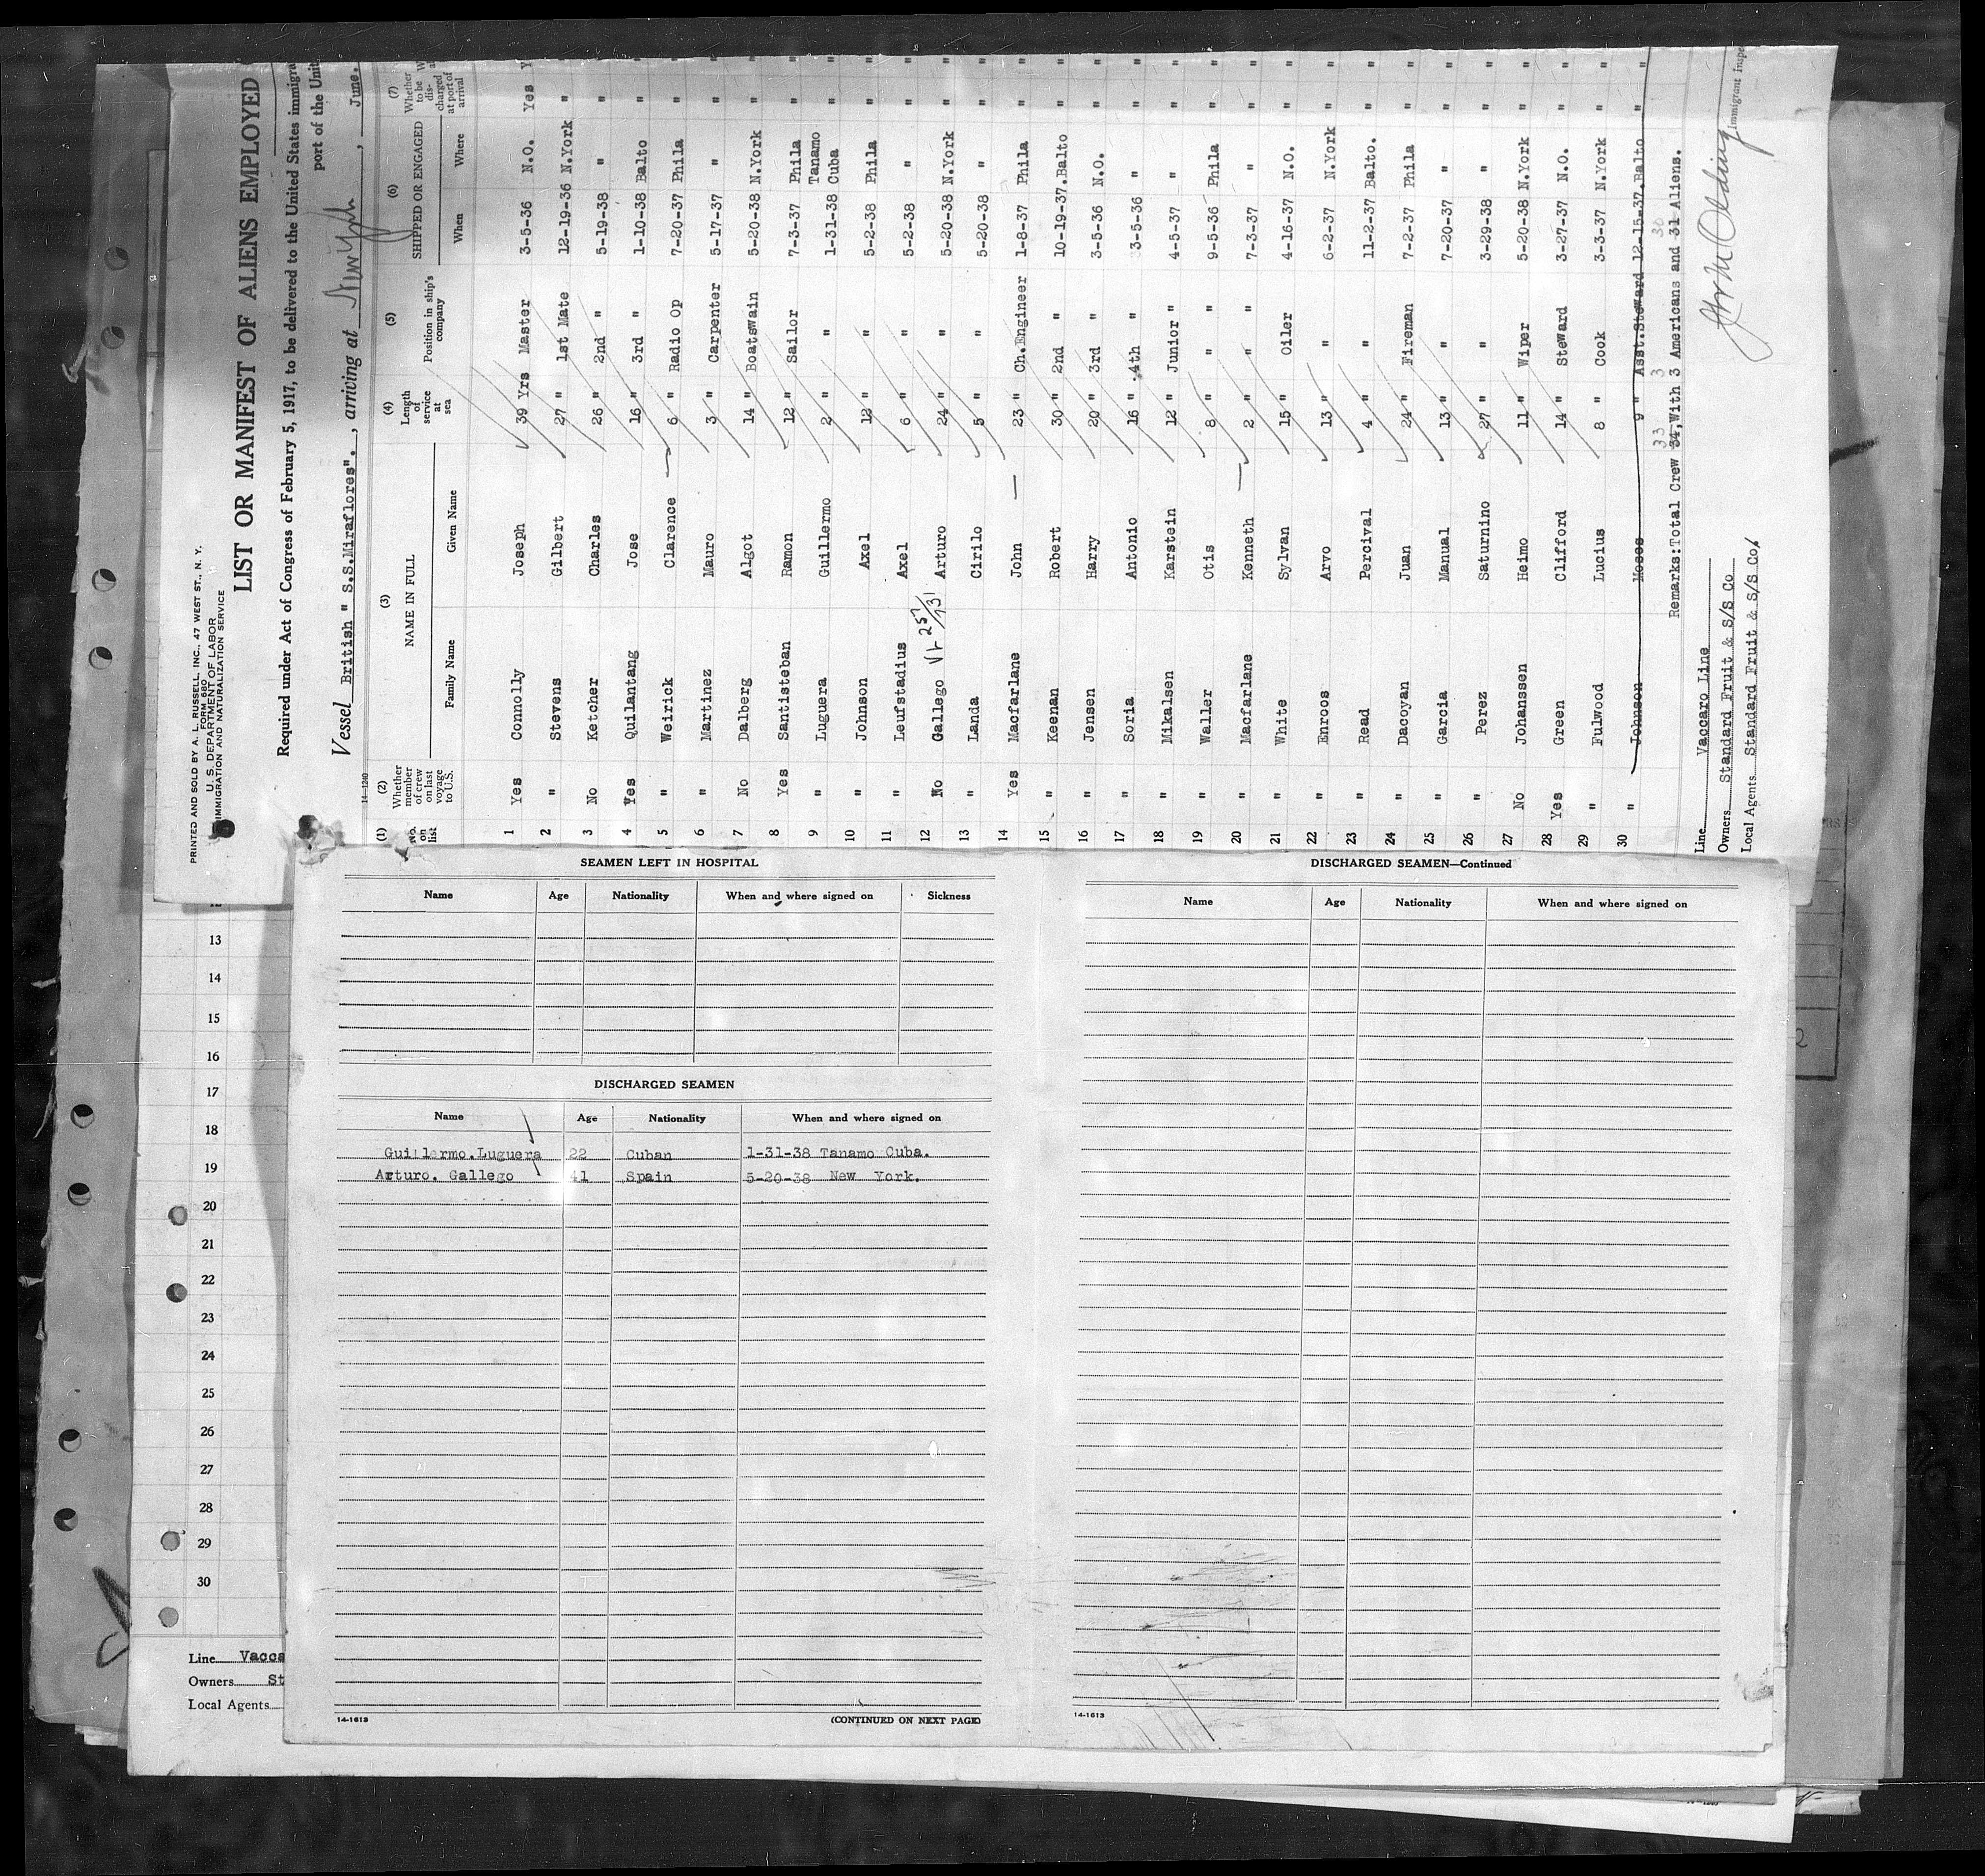 PRINTED AND SOLD BY A. L. RUSSELL, INC., 47 WEST ST., N. Y.
FORM 680
U. S. DEPARTMENT OF LABOR
IMMIGRATION AND NATURALIZATION SERVICE
LIST OR MANIFEST OF ALIENS EMPLOYED
Required under Act of Congress of February 5, 1917, to be delivered to the United States immigra
port of the Unit
Vessel British " S.S.Miraflores". , arriving at New York , June.
14-1240
(1) (2) (3) (4) (5) (6) (7)
No. on list
Whether member of crew on last voyage to U.S.
NAME IN FULL
Family Name Given Name
Length of service at sea
Position in ship's company
SHIPPED OR ENGAGED
When Where
Whether to be dis- charged at port of arrival
1 Yes Connolly Joseph 39 Yrs Master 3-5-36 N.O. Yes Y
2 " Stevens Gilbert 27 " 1st Mate 12-19-36 N.York " "
3 No Ketcher Charles 26 " 2nd " 5-19-38 " " "
4 Yes Quilantang Jose 16 " 3rd " 1-10-38 Balto " "
5 " Weirick Clarence 6 " Radio Op 7-20-37 Phila " "
6 " Martinez Mauro 3 " Carpenter 5-17-37 " " "
7 No Dalberg Algot 14 " Boatswain 5-20-38 N.York " "
8 Yes Santisteban Ramon 12 " Sailor 7-3-37 Phila " "
9 " Luguera Guillermo 2 " " 1-31-38 Tanamo Cuba " "
10 " Johnson Axel 12 " " 5-2-38 Phila " "
11 " Leufstadius Axel 6 " " 5-2-38 " " "
12 No Gallego Arturo 24 " " 5-20-38 N.York " "
13 " Landa Cirilo 5 " " 5-20-38 " " "
14 Yes Macfarlane John 23 " Ch.Engineer 1-8-37 Phila " "
15 " Keenan Robert 30 " 2nd " 10-19-37.Balto " "
16 " Jensen Hary 20 " 3rd " 3-5-36 N.O. " "
17 " Soria Antonio 16 " .4th " 3-5-36 " " "
18 " Mikalsen Karstein 12 " Junior " 4-5-37 " " "
19 " Waller Otis 8 " " " 9-5-36 Phila " "
20 " Macfarlane Kenneth 2 " " " 7-3-37 " " "
21 " White Sylvan 15 " Oiler 4-16-37 N.O. " "
22 " Enroos Arvo 13 " " 6-2-37 N.York " "
23 " Read Percival 4 " " 11-2-37 Balto. " "
24 " Dacoyan Juan 24 " Fireman 7-2-37 Phila " "
25 " Garcia Manual 13 " " 7-20-37 " " "
26 " Perez Saturnino 27 " " 3-29-38 " " "
27 No Johanssen Heimo 11 " Wiper 5-20-38 N.York " "
28 Yes Green Clifford 14 " Steward 3-27-37 N.O. " "
29 " Fulwood Lucius 8 " Cook 3-3-37 N.York " "
30 " Johnson Moses 9 " Asst.Steward 12-15-37.Balto " "
33 3 30
Remarks:Total Crew 34,With 3 Americans and 31 Aliens.
Line Vaccaro Line
Owners Standard Fruit & S/S Co
Local Agents Standard Fruit & S/S Co.
Immigrant Inspe
SEAMEN LEFT IN HOSPITAL
Name Age Nationality When and where signed on Sickness
DISCHARGED SEAMEN
Name Age Nationality When and where signed on
Guillermo.Luguera 22 Cuban 1-31-38 Tanamo Cuba.
Arturo. Gallego 41 Spain 5-20-38 New York.
14-1613
(CONTINUED ON NEXT PAGE)
DISCHARGED SEAMEN—Continued
Name Age Nationality When and where signed on
14-1613
13
14
15
16
17
18
19
20
21
22
23
24
25
26
27
28
29
30
Line Vacca
Owners St
Local Agents